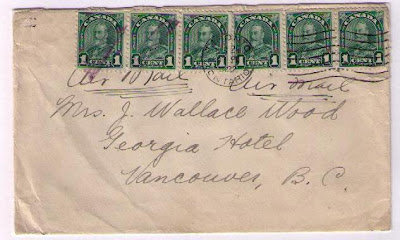 CANADA CANADA CANADA CANADA CANADA CANADA
1 CENT 1 1 CENT 1 1 CENT 1 1 CENT 1 1 CENT 1 1 CENT 1
Air Mail Air Mail
Mrs. J. Wallace Wood
Georgia Hotel
Vancouver, B. C.